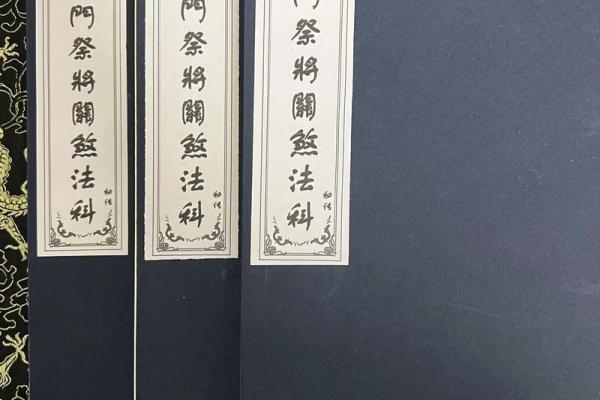 門祭將關煞法科
秘傳
門祭將關煞法科
秘傳
門祭將關煞法科
秘傳